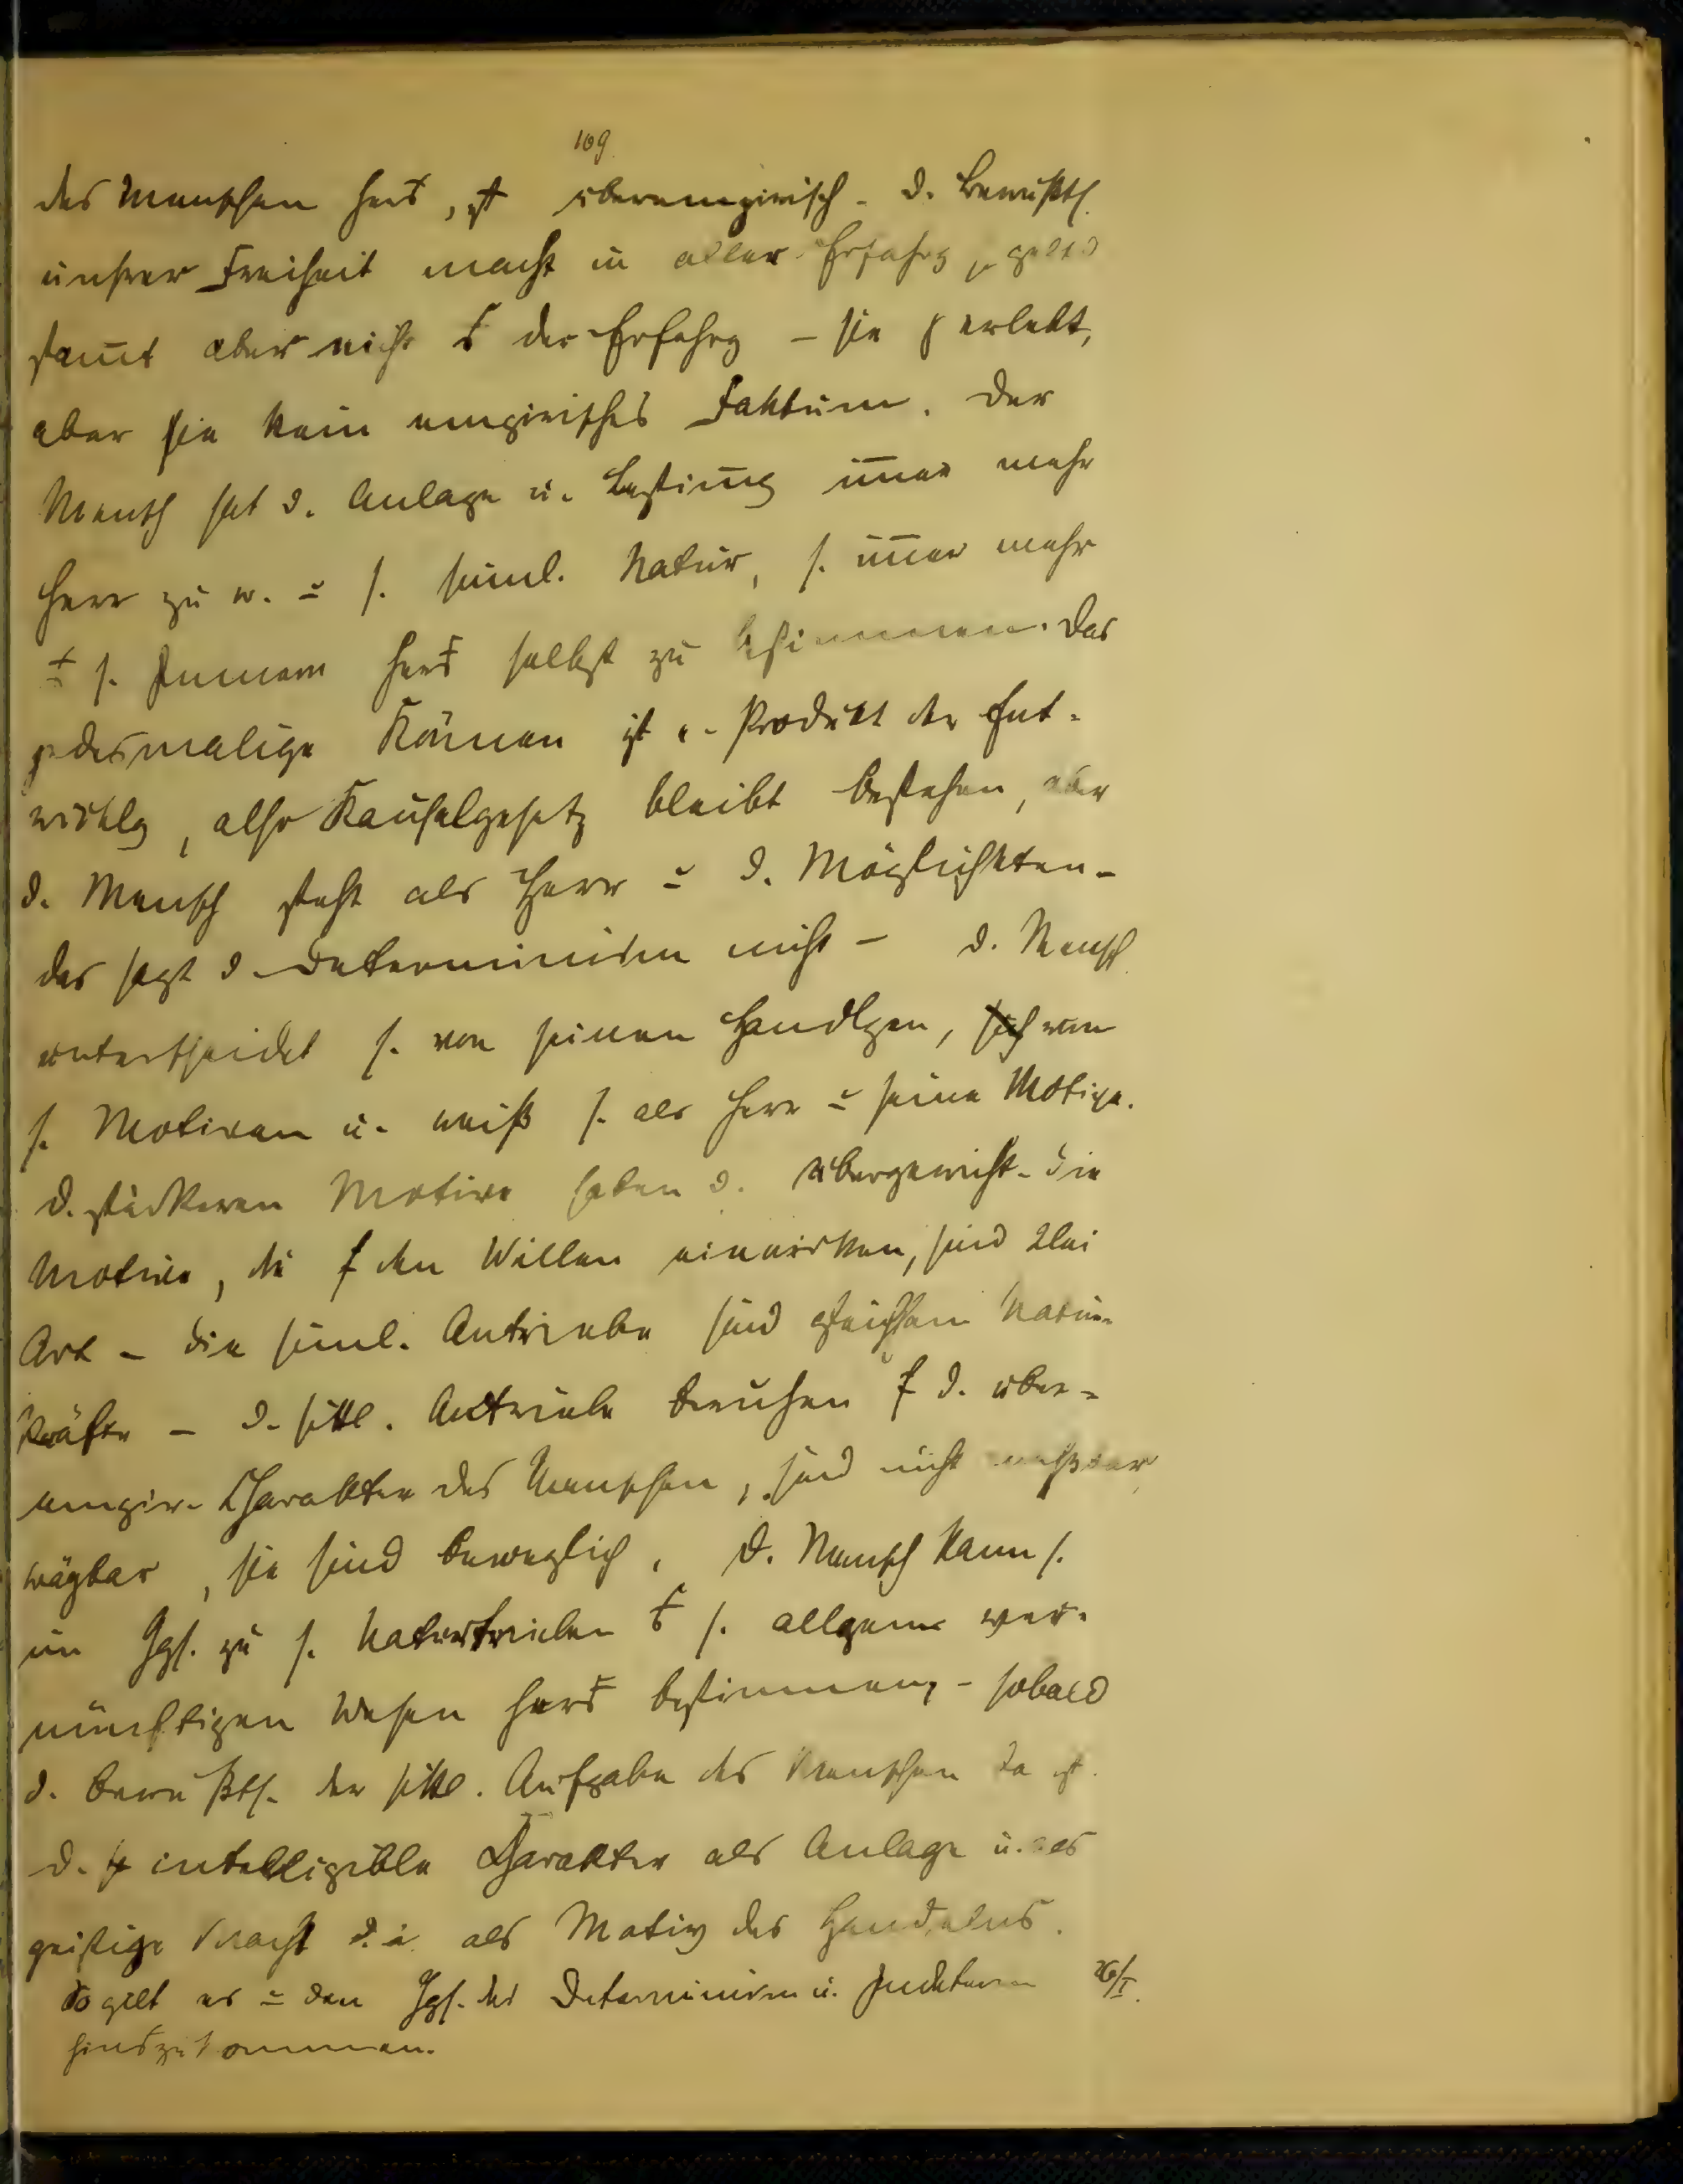 109
des Menschen her, ist überempirisch - d. Bewußts.
unsrer Freiheit macht in aller Erfahrg s. geltd
stam̅t aber nicht der Erfahrg - sie erlebt,
aber sie kein empirisches Faktum. Der
Mensch hat d. Anlage u. Bestim̅g im̅er mehr
Herr zu w. s. sinnl. Natur, s. im̅er mehr
s. Innern her selbst zu bestimmen. Das
jedesmalige Können ist e. Produkt der Ent-
wicklg, also Kausalgesetz bleibt bestehen, aber
d. Mensch steht als Herr d. Möglichkten -
das sagt d. Determinism nicht - d. Mensch
unterscheidet s. von seinen Handlgen, von
s. Motiven u. weiß s. als Herr seine Motive.
d. stärkeren Motive haben d. Übergewicht - Die
Motive, die den Willen einwirken, sind 2lei
Art - die sinnl. Antriebe sind gleichsam Natur-
kräfte - d. sittl. Antriebe beruhen d. über-
empir. Charakter des Menschen, sind nicht meßbar
wägbar, sie sind beweglich. D. Mensch kann s.
im Ggs. zu s. Naturtrieben s. allgem. ver-
nünftigen Wesen her bestimmen, - sobald
d. Bewußts. der sittl. Aufgabe des Menschen da ist.
d. intelligible Charakter als Anlage u. als
geistige Macht d. i. als Motiv des Handelns.
So gilt es den Ggs. des Determinism u. Indeterm 26/I.
hinszukommen.